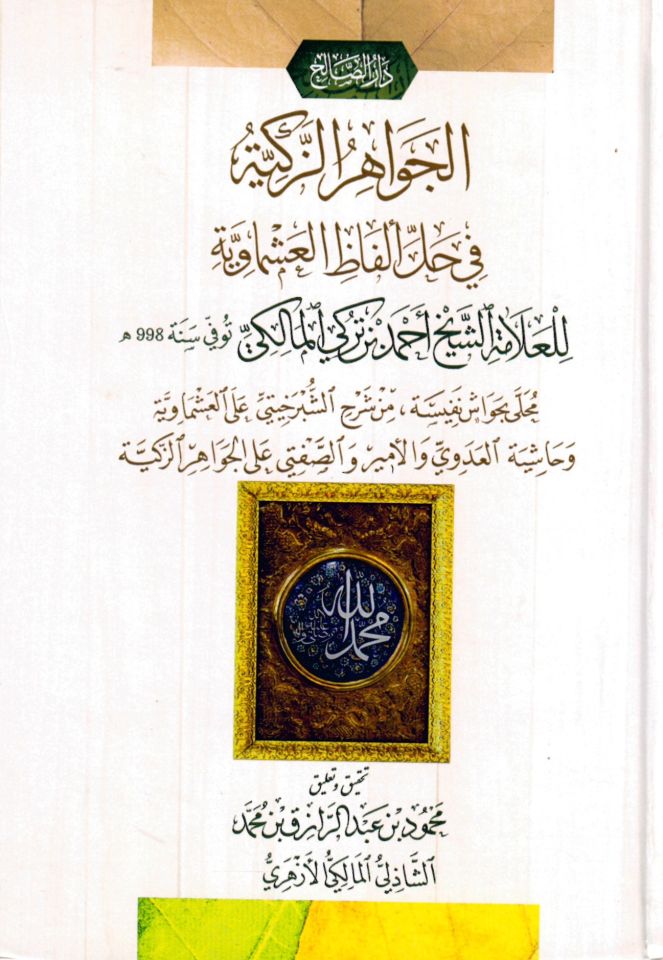 دَارُ الصَّالِحِ
الجَوَاهِرُ الزَّكِيَّةُ
فِي حَلِّ أَلفَاظِ العَشْمَاوِيَّةِ
لِلعَلَّامَةِ الشَّيْخِ أَحْمَدَ بْنِ تُرْكِي المَالِكِيِّ تُوُفِّيَ سَنَة 998 هـ
مُحَلًّى بِحَوَاشٍ نَفِيسَة، مِنْ شَرْحِ الشُّبْرَخِيتِيِّ عَلَى العَشْمَاوِيَّة
وَحَاشِيَة العَدَوِيِّ وَالأَمِيرِ وَالصَّفْتِي عَلَى الجَوَاهِرِ الزَّكِيَّة
الله
محمد
تحقيق وتعليق
مَحْمُود بْن عَبْد الرَّازِق بْن مُحَمَّد
الشَّاذِلِيُّ المَالِكِيُّ الأَزْهَرِيُّ